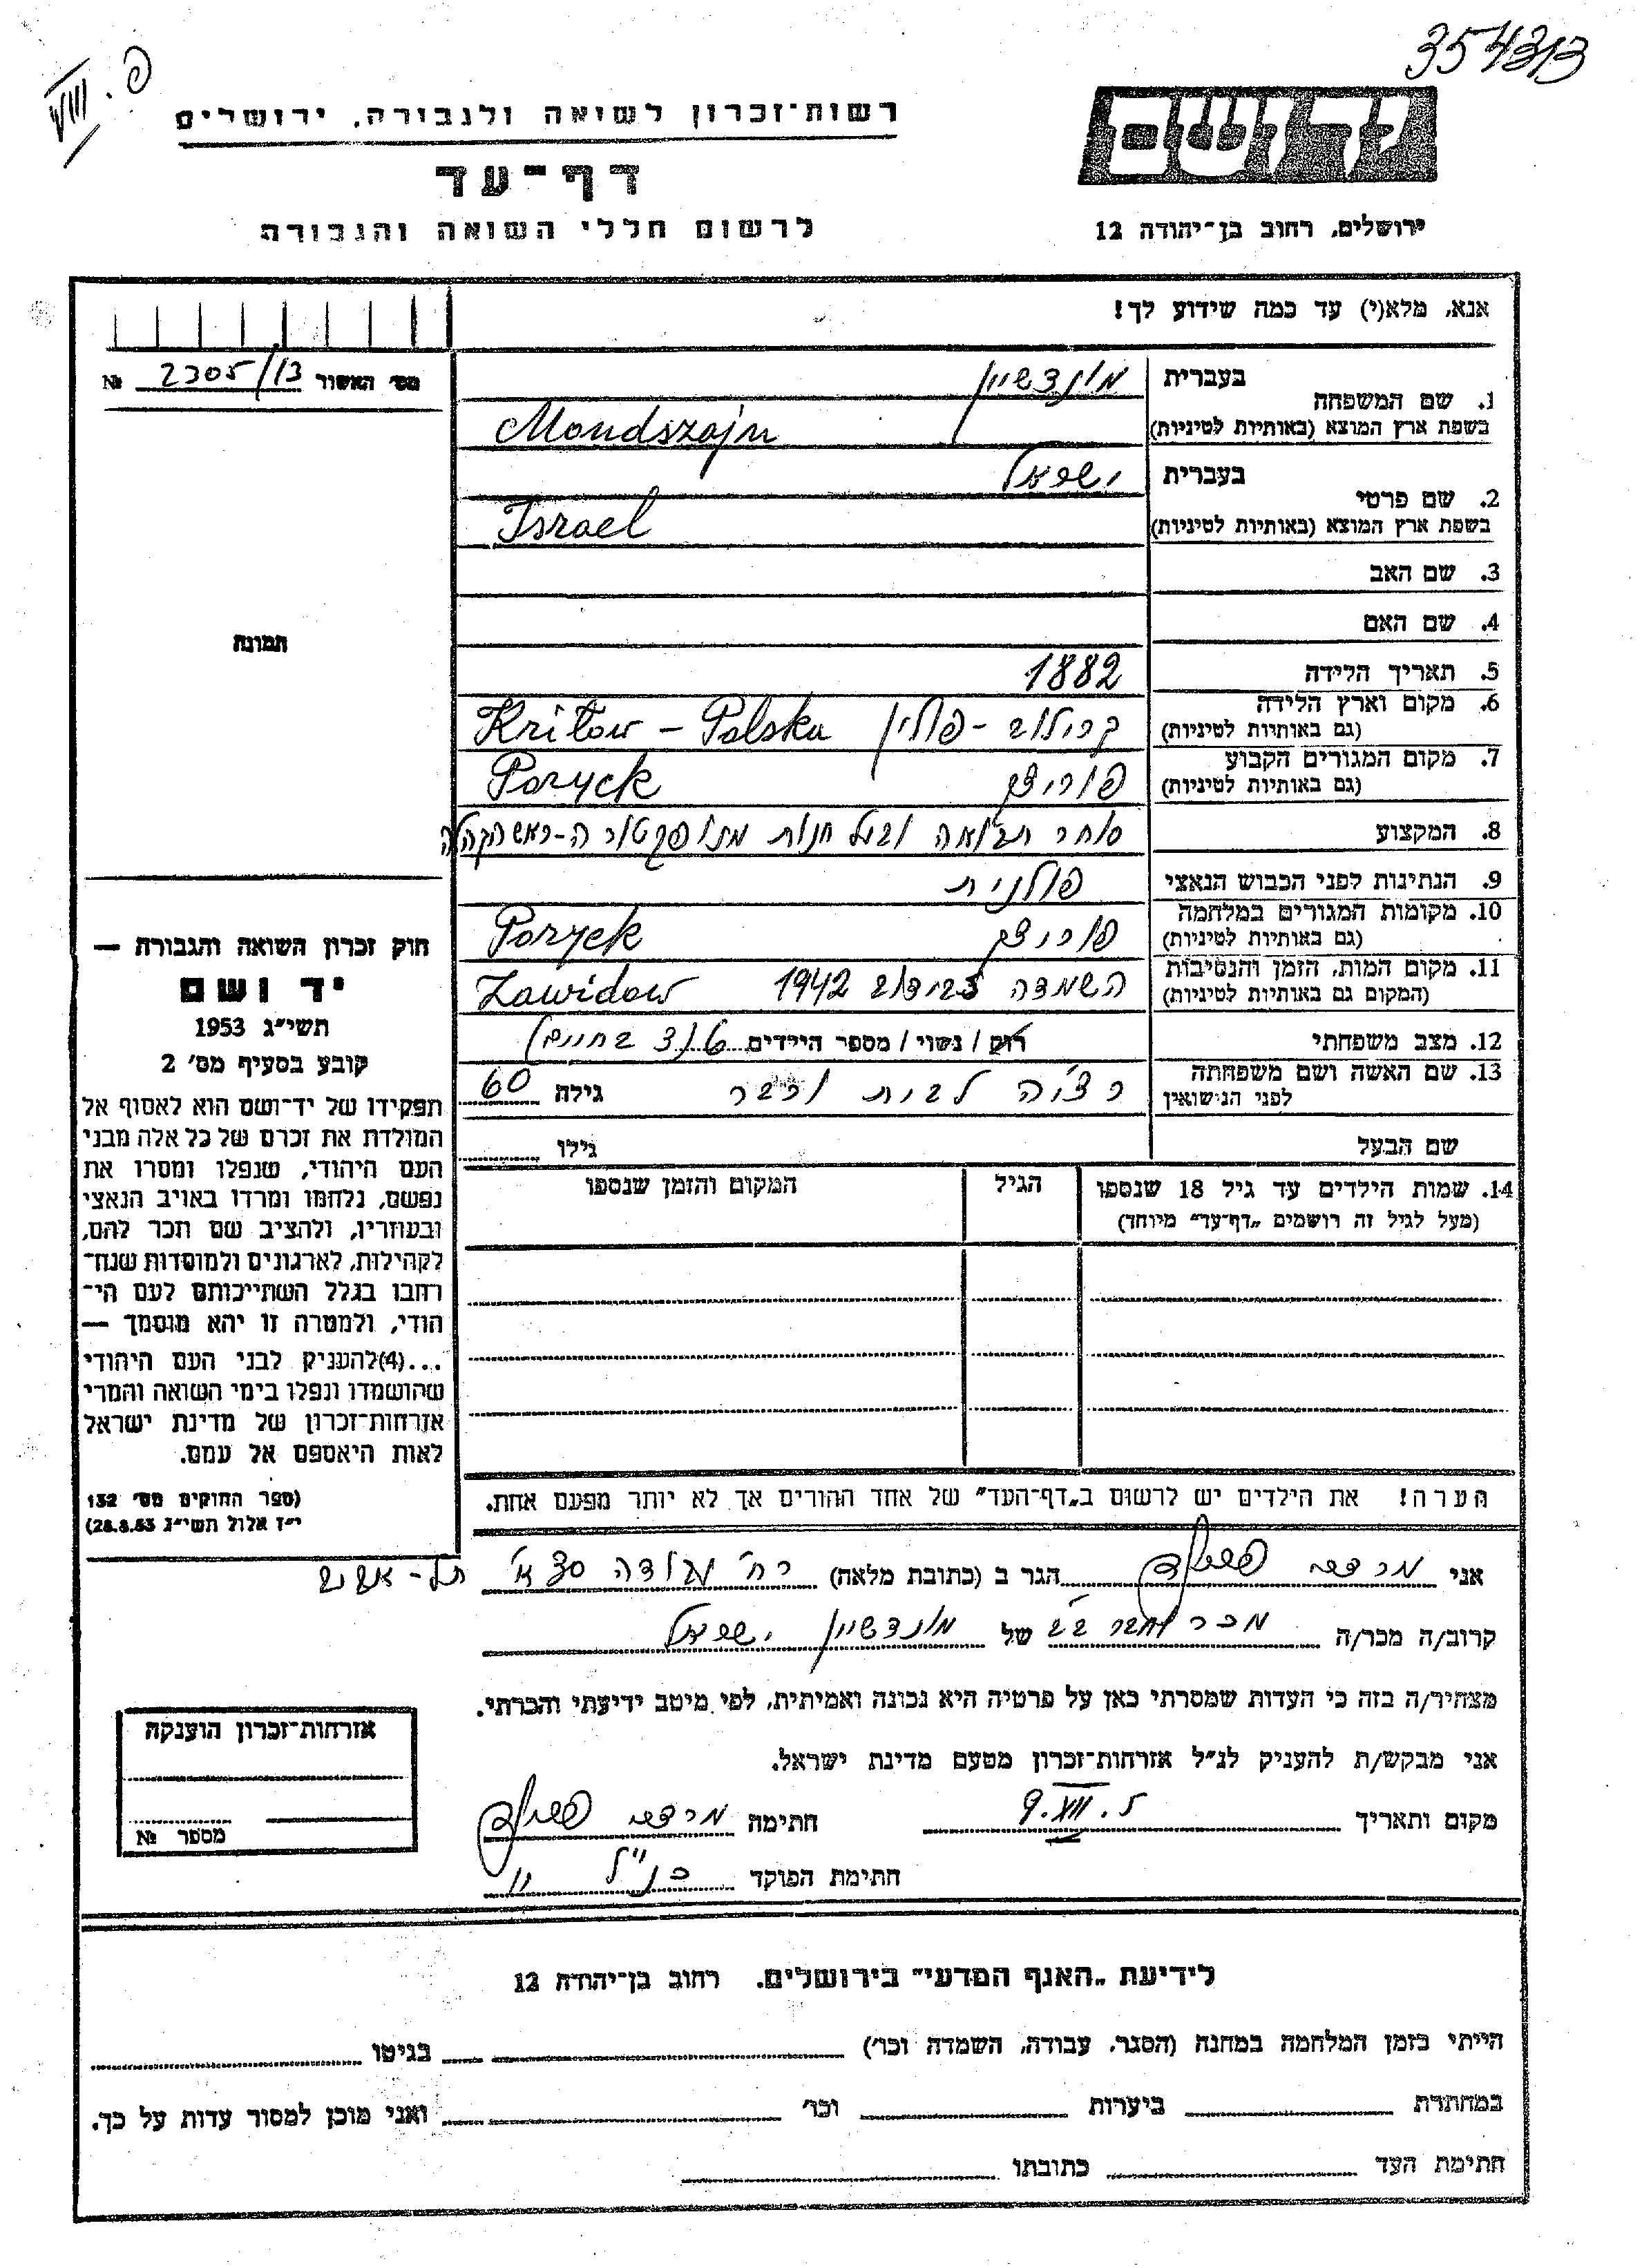 354313
פ. VIII
ידושם
רשות־זכרון לשואה ולגבורה, ירושלים
דף־עד
לרשום חללי השואה והגבורה
ירושלים, רחוב בן־יהודה 12
אנא, מלא(י) עד כמה שידוע לך!
מס׳ האשור 2305/13 №
1. שם המשפחה
בעברית מונדשיין
בשפת ארץ המוצא (באותיות לטיניות) Mondszajn
2. שם פרטי
בעברית ישראל
בשפת ארץ המוצא (באותיות לטיניות) Israel
3. שם האב
4. שם האם
תמונה
5. תאריך הלידה 1882
6. מקום וארץ הלידה (גם באותיות לטיניות) קרילוב - פולין Kriłow - Polska
7. מקום המגורים הקבוע (גם באותיות לטיניות) פוריצק Poryck
8. המקצוע סוחר תבואה ובעל חנות מנופקטורה - ראש הקהלה
9. הנתינות לפני הכבוש הנאצי פולנית
10. מקומות המגורים במלחמה (גם באותיות לטיניות) פוריצק Poryck
11. מקום המות, הזמן והנסיבות (המקום גם באותיות לטיניות) השמדה 1942 Zawidow
12. מצב משפחתי רוק / נשוי / מספר הילדים בחיים)
13. שם האשה ושם משפחתה לפני הנישואין לבית גילה 60
שם הבעל גילו
14. שמות הילדים עד גיל 18 שנספו
(מעל לגיל זה רושמים „דף־עד״ מיוחד)
הגיל
המקום והזמן שנספו
חוק זכרון השואה והגבורה —
יד ושם
תשי״ג 1953
קובע בסעיף מס׳ 2
תפקידו של יד־ושם הוא לאסוף אל
המולדת את זכרם של כל אלה מבני
העם היהודי, שנפלו ומסרו את
נפשם, נלחמו ומרדו באויב הנאצי
ובעוזריו, ולהציב שם וזכר להם,
לקהילות, לארגונים ולמוסדות שנח־
רחבו בגלל השתייכותם לעם הי־
הודי, ולמטרה זו יהא מוסמך —
...(4)להעניק לבני העם היהודי
שהושמדו ונפלו בימי השואה והמרי
אזרחות־זכרון של מדינת ישראל
לאות היאספם אל עמם.
(ספר החוקים מס׳ 132
י״ז אלול תשי״ג 28.8.53)
הערה! את הילדים יש לרשום ב„דף־העד״ של אחד ההורים אך לא יותר מפעם אחת.
אני מרדכי הגר ב (כתובת מלאה) רח׳ תל-אביב
קרוב/ה מכר/ה מכר של מונדשיין ישראל
מצהיר/ה בזה כי העדות שמסרתי כאן על פרטיה היא נכונה ואמיתית, לפי מיטב ידיעתי והכרתי.
אני מבקש/ת להעניק לנ״ל אזרחות־זכרון מטעם מדינת ישראל.
מקום ותאריך חתימה מרדכי
חתימת הפוקד כנ״ל
אזרחות־זכרון הוענקה
מספר №
לידיעת „האגף המדעי״ בירושלים. רחוב בן־יהודה 12
הייתי בזמן המלחמה במחנה (הסגר, עבודה, השמדה וכו׳) בגיטו
במחתרת ביערות וכו׳ ואני מוכן למסור עדות על כך.
חתימת העד כתובתו